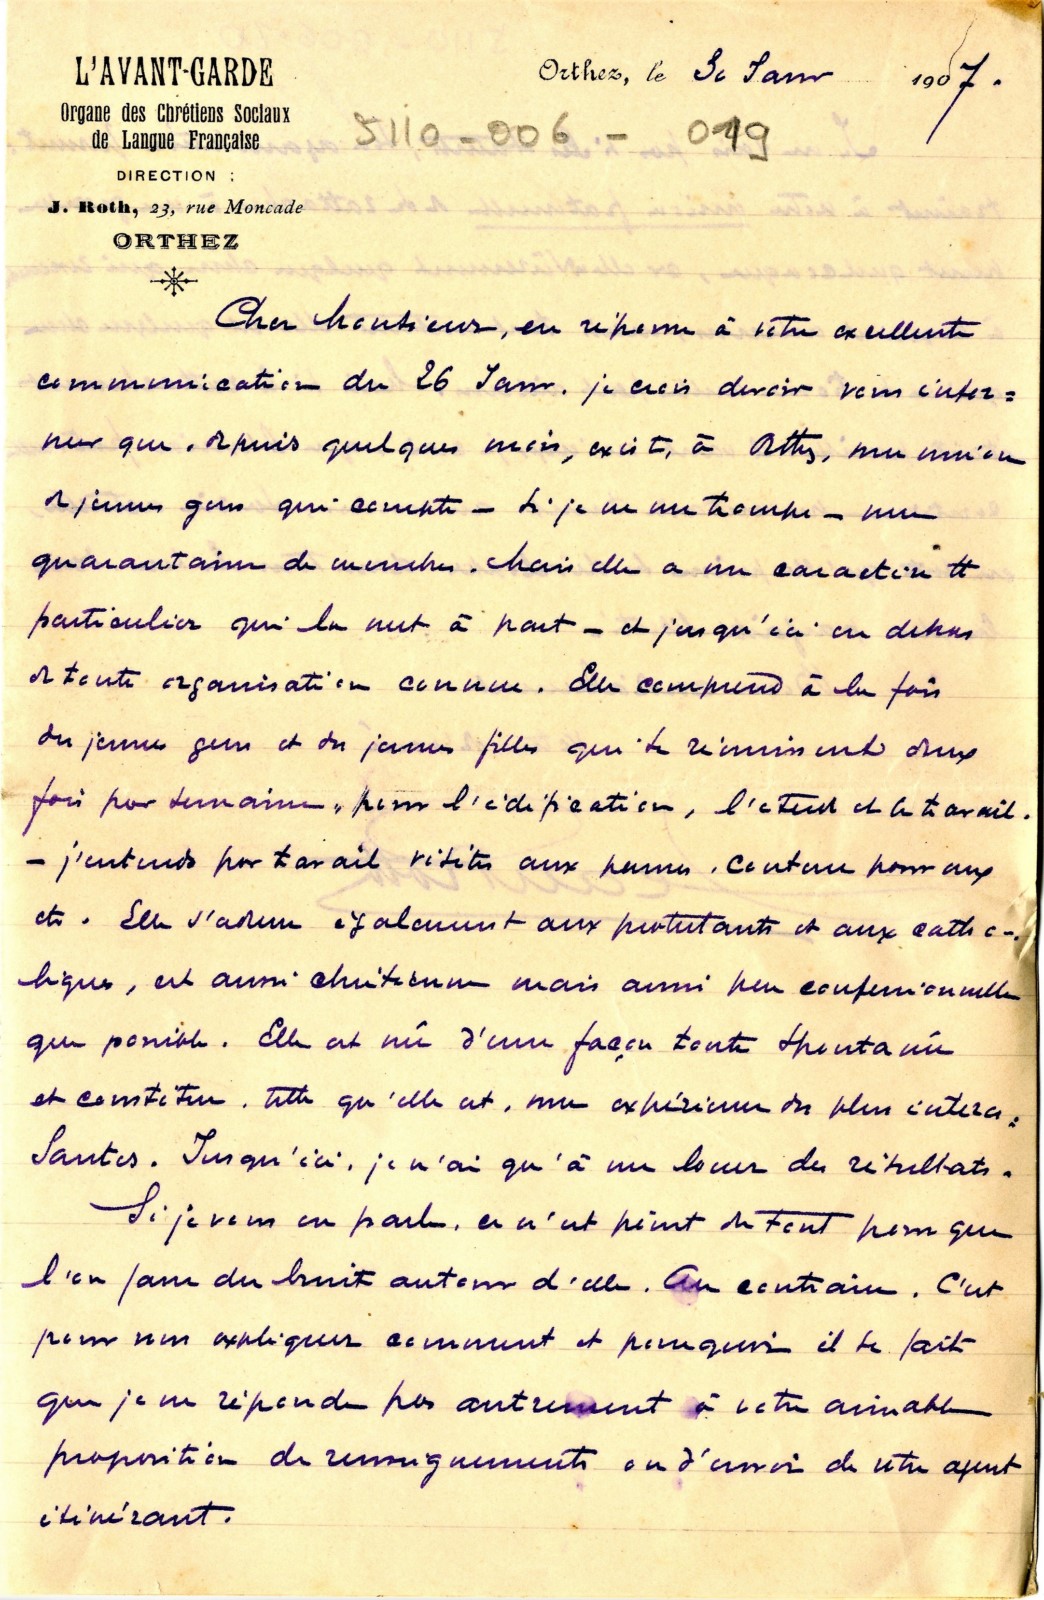 L'AVANT-GARDE
Organe des Chrétiens Sociaux
de Langue Française
DIRECTION :
J. Roth, 23, rue Moncade
ORTHEZ
Orthez, le 30 Janv 1907.
5110-006 - 019
Cher Monsieur, en réponse à votre excellente
communication du 26 Janv. je crois devoir vous infor=
mer que, depuis quelques mois, existe, à Orthez, une union
de jeunes gens qui compte — si je ne me trompe — une
quarantaine de membres. Mais elle a un caractère tt
particulier qui la met à part — et jusqu'ici en dehors
de toute organisation connue. Elle comprend à la fois
des jeunes gens et des jeunes filles qui se réunissent deux
fois par semaine, pour l'édification, l'étude et le travail.
— j'entends par travail visites aux pauvres, couture pour eux
etc. Elle s'adresse également aux protestants et aux catho-
liques, est aussi chrétienne mais aussi peu confessionnelle
que possible. Elle est née d'une façon toute spontanée
et constitue, telle qu'elle est, une expérience des plus intéres=
santes. Jusqu'ici, je n'ai qu'à me louer des résultats.
Si je vous en parle, ce n'est point du tout pour que
l'on fasse du bruit autour d'elle. Au contraire. C'est
pour vous expliquer comment et pourquoi il se fait
que je ne réponde pas autrement à votre aimable
proposition de renseignements ou d'envoi de votre agent
itinérant.